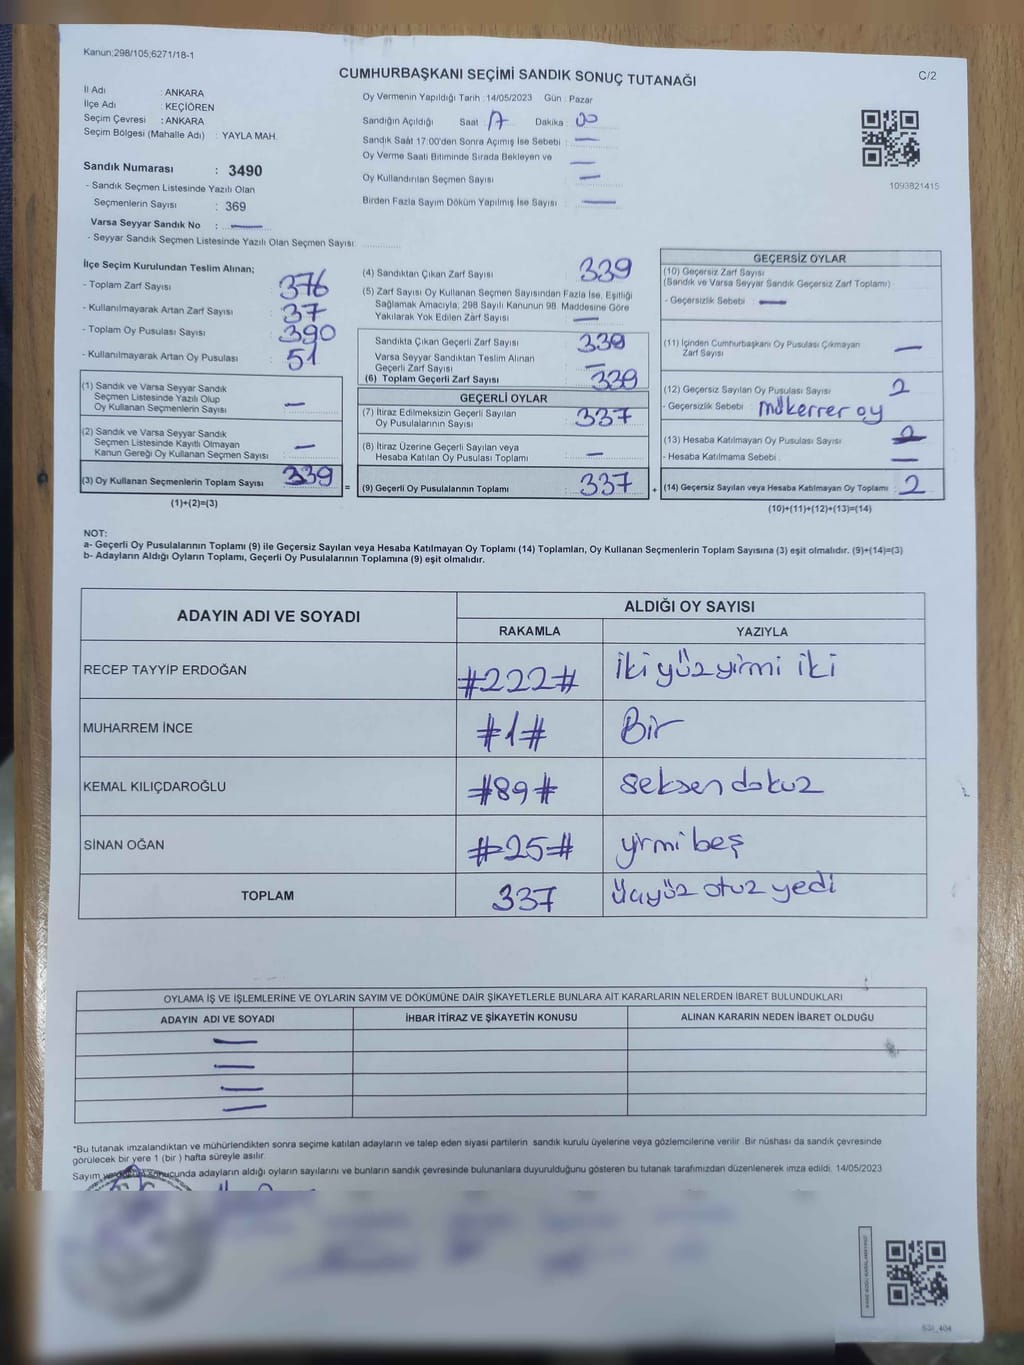 Kanun:298/105;6271/18-1
C/2
CUMHURBAŞKANI SEÇİMİ SANDIK SONUÇ TUTANAĞI
İl Adı : ANKARA
İlçe Adı : KEÇİÖREN
Seçim Çevresi : ANKARA
Seçim Bölgesi (Mahalle Adı) : YAYLA MAH.
Sandık Numarası : 3490
- Sandık Seçmen Listesinde Yazılı Olan
Seçmenlerin Sayısı : 369
Varsa Seyyar Sandık No : —
- Seyyar Sandık Seçmen Listesinde Yazılı Olan Seçmen Sayısı
Oy Vermenin Yapıldığı Tarih : 14/05/2023 Gün : Pazar
Sandığın Açıldığı Saat : 17 Dakika : 00
Sandık Saat 17:00'den Sonra Açımış İse Sebebi : —
Oy Verme Saati Bitiminde Sırada Bekleyen ve —
Oy Kullandırılan Seçmen Sayısı : —
Birden Fazla Sayım Döküm Yapılmış İse Sayısı : —
1093821415
İlçe Seçim Kurulundan Teslim Alınan;
- Toplam Zarf Sayısı : 376
- Kullanılmayarak Artan Zarf Sayısı : 37
- Toplam Oy Pusulası Sayısı : 390
- Kullanılmayarak Artan Oy Pusulası : 51
(1) Sandık ve Varsa Seyyar Sandık
Seçmen Listesinde Yazılı Olup
Oy Kullanan Seçmenlerin Sayısı : —
(2) Sandık ve Varsa Seyyar Sandık
Seçmen Listesinde Kayıtlı Olmayan
Kanun Gereği Oy Kullanan Seçmen Sayısı : —
(3) Oy Kullanan Seçmenlerin Toplam Sayısı : 339
(1)+(2)=(3)
=
(4) Sandıktan Çıkan Zarf Sayısı : 339
(5) Zarf Sayısı Oy Kullanan Seçmen Sayısından Fazla İse, Eşitliği
Sağlamak Amacıyla; 298 Sayılı Kanunun 98. Maddesine Göre
Yakılarak Yok Edilen Zarf Sayısı : —
Sandıkta Çıkan Geçerli Zarf Sayısı : 339
Varsa Seyyar Sandıktan Teslim Alınan
Geçerli Zarf Sayısı : —
(6) Toplam Geçerli Zarf Sayısı : 339
GEÇERLİ OYLAR
(7) İtiraz Edilmeksizin Geçerli Sayılan
Oy Pusulalarının Sayısı : 337
(8) İtiraz Üzerine Geçerli Sayılan veya
Hesaba Katılan Oy Pusulası Toplamı : —
(9) Geçerli Oy Pusulalarının Toplamı : 337
+
GEÇERSİZ OYLAR
(10) Geçersiz Zarf Sayısı
(Sandık ve Varsa Seyyar Sandık Geçersiz Zarf Toplamı)
- Geçersizlik Sebebi : —
(11) İçinden Cumhurbaşkanı Oy Pusulası Çıkmayan
Zarf Sayısı —
(12) Geçersiz Sayılan Oy Pusulası Sayısı : 2
- Geçersizlik Sebebi : mükerrer oy
(13) Hesaba Katılmayan Oy Pusulası Sayısı :
- Hesaba Katılmama Sebebi : —
(14) Geçersiz Sayılan veya Hesaba Katılmayan Oy Toplamı : 2
(10)+(11)+(12)+(13)=(14)
NOT:
a- Geçerli Oy Pusulalarının Toplamı (9) ile Geçersiz Sayılan veya Hesaba Katılmayan Oy Toplamı (14) Toplamları, Oy Kullanan Seçmenlerin Toplam Sayısına (3) eşit olmalıdır. (9)+(14)=(3)
b- Adayların Aldığı Oyların Toplamı, Geçerli Oy Pusulalarının Toplamına (9) eşit olmalıdır.
ADAYIN ADI VE SOYADI ALDIĞI OY SAYISI
RAKAMLA YAZIYLA
RECEP TAYYİP ERDOĞAN #222# İki yüz yirmi iki
MUHARREM İNCE #1# Bir
KEMAL KILIÇDAROĞLU #89# seksen dokuz
SİNAN OĞAN #25# yirmi beş
TOPLAM 337 üçyüz otuz yedi
OYLAMA İŞ VE İŞLEMLERİNE VE OYLARIN SAYIM VE DÖKÜMÜNE DAİR ŞİKAYETLERLE BUNLARA AİT KARARLARIN NELERDEN İBARET BULUNDUKLARI
ADAYIN ADI VE SOYADI İHBAR İTİRAZ VE ŞİKAYETİN KONUSU ALINAN KARARIN NEDEN İBARET OLDUĞU
—
—
—
—
*Bu tutanak imzalandıktan ve mühürlendikten sonra seçime katılan adayların ve talep eden siyasi partilerin sandık kurulu üyelerine veya gözlemcilerine verilir .Bir nüshası da sandık çevresinde
görülecek bir yere 1 (bir ) hafta süreyle asılır.
Sayım ve döküm sonucunda adayların aldığı oyların sayılarını ve bunların sandık çevresinde bulunanlara duyurulduğunu gösteren bu tutanak tarafımızdan düzenlenerek imza edildi. 14/05/2023